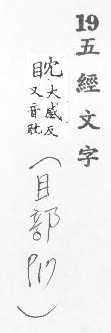 19五經文字
眈大感反又音耽
(目部P17)